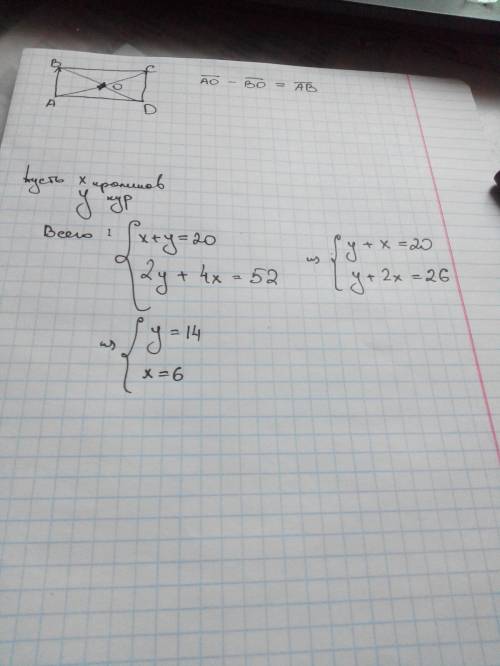 B C
O
A D
A̅O̅ - B̅O̅ = A̅B̅
Пусть x кроликов
y кур
Всего : { x+y=20
2y + 4x = 52
=> { y + x = 20
y + 2x = 26
=> { y = 14
x = 6